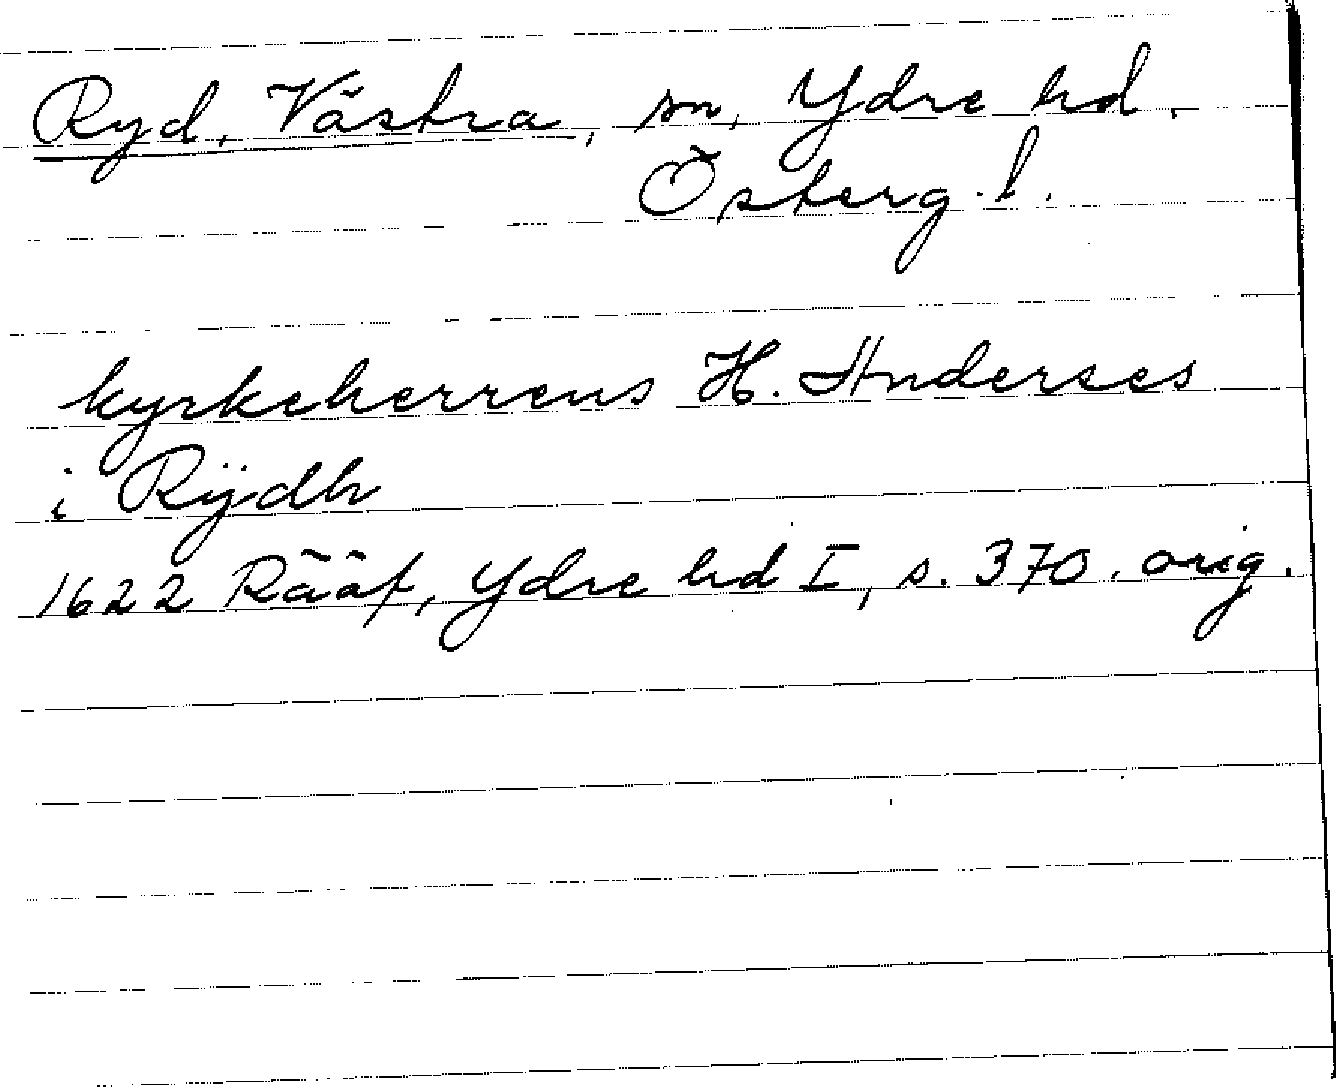 Ryd, Västra, sn, Ydre hd.
Österg. l.
kyrkeherrens H. Anderses
i Rÿdh
1622 Rääf, Ydre hd I, s. 370. orig.